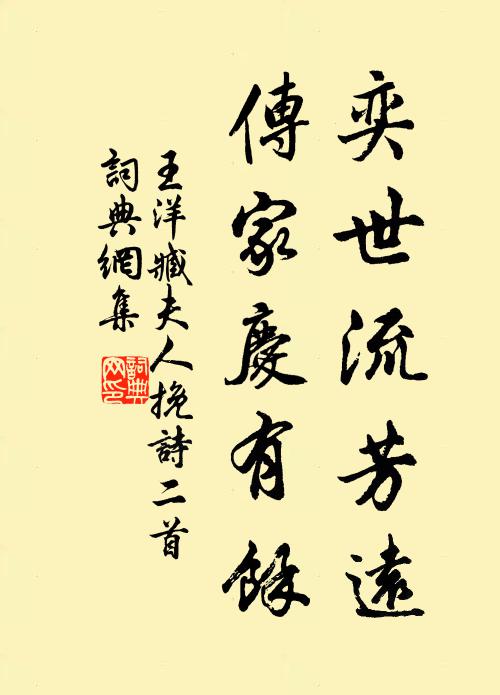 奕世流芳遠
傳家慶有餘
王洋臧夫人挽詩二首
詞典網集
詞典
网印